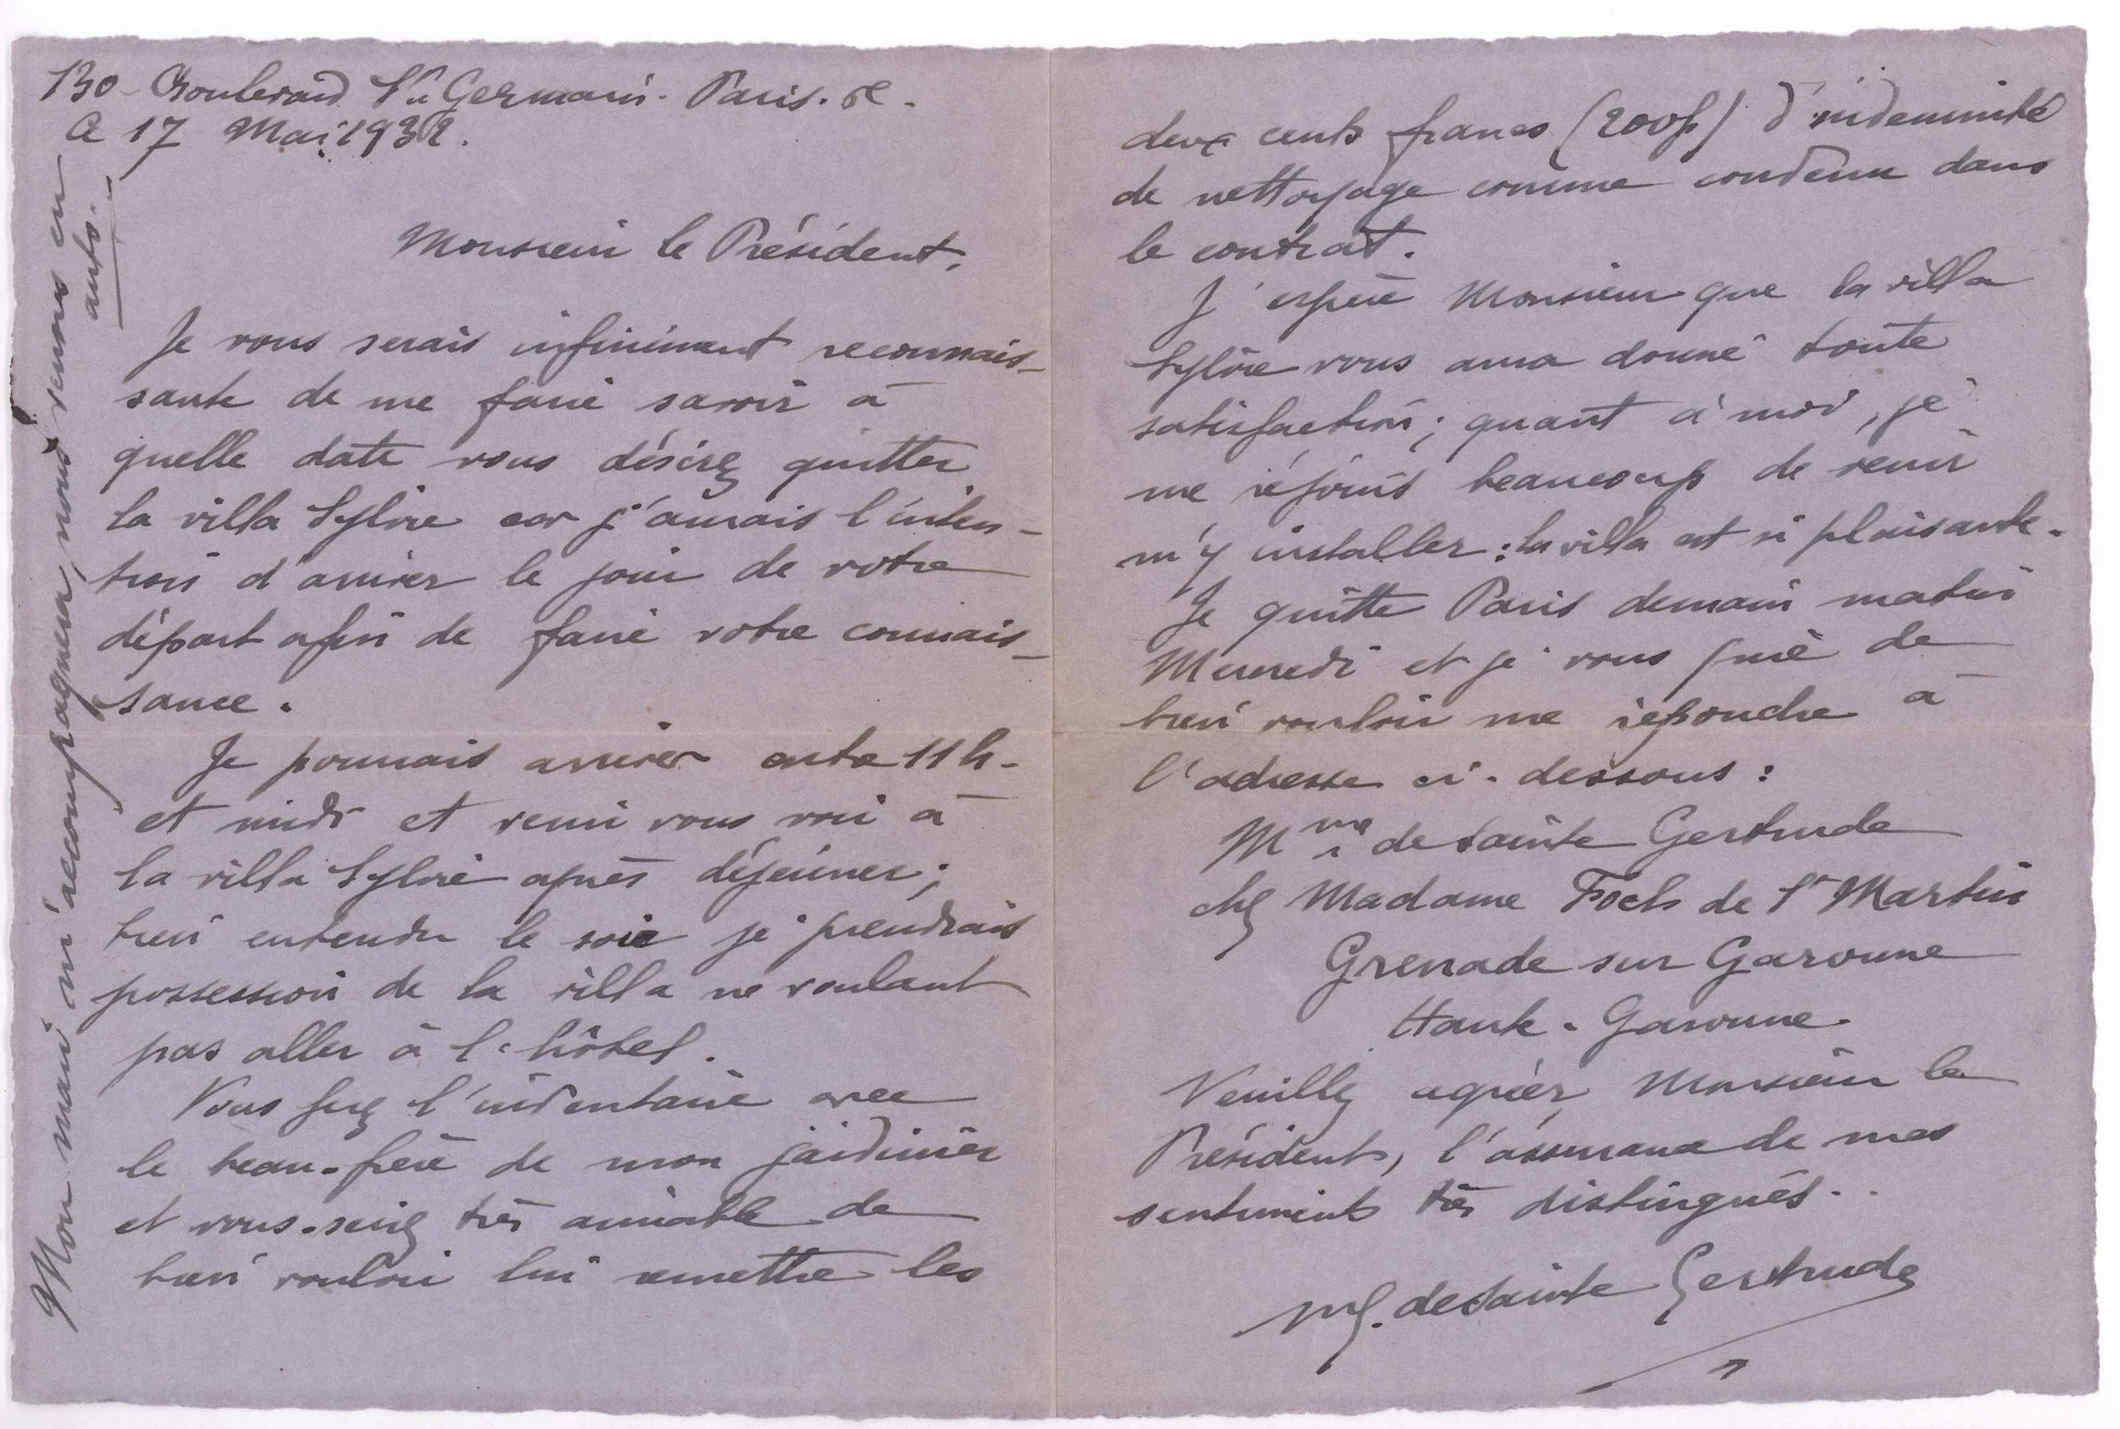 130 - Boulevard St Germain. Paris. 6e.
le 17 Mai 1932.
Monsieur le Président,
Je vous serais infiniment reconnais-
sante de me faire savoir à
quelle date vous désirez quitter
la villa Sylvie car j'aurais l'inten-
tion d'arriver le jour de votre
départ afin de faire votre connais-
sance.
Je pourrais arriver entre 11h-
et midi et venir vous voir à
la villa Sylvie après déjeuner;
bien entendu le soir je prendrais
possession de la villa ne voulant
pas aller à l'hôtel.
Vous ferez l'inventaire avec
le beau-frère de mon jardinier
et vous seriez très aimable de
bien vouloir lui remettre les
Mon mari m'accompagnera, nous venons en
auto.-
deux cents francs (200f) d'indemnité
de nettoyage comme convenu dans
le contrat.
J'espère Monsieur que la villa
Sylvie vous aura donné toute
satisfaction; quant à moi, je
me réjouis beaucoup de venir
m'y installer: la villa est si plaisante.
Je quitte Paris demain matin
Mercredi et je vous prie de
bien vouloir me répondre à
l'adresse ci-dessous:
Mme de Sainte Gertrude
chez Madame Foch de St Martin
Grenade sur Garonne
Haute-Garonne.
Veuillez agréer, Monsieur le
Président, l'assurance de mes
sentiments très distingués.
de Sainte Gertrude